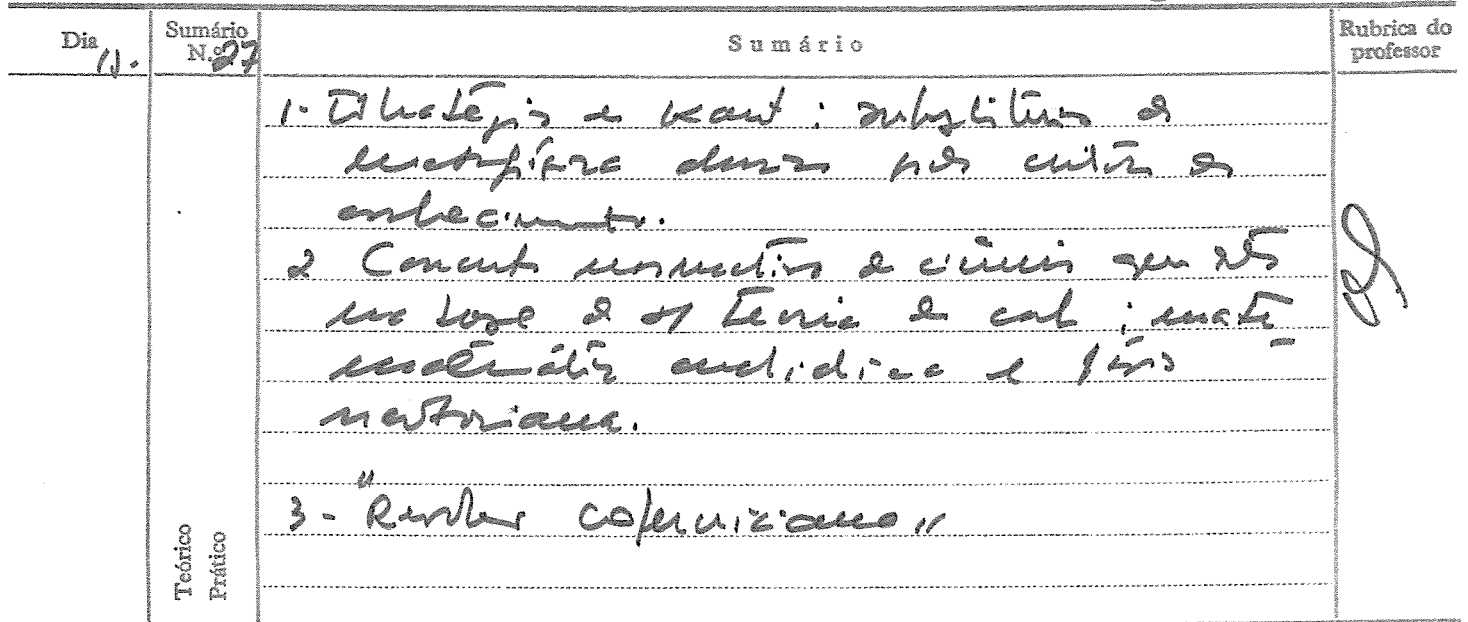 Dia 11.
Sumário N.º 27
Sumário
Rubrica do professor
1- Estratégia de Kant: substituição da
metafísica clássica pela crítica do
conhecimento.
2 Conceito normativo de ciência que está
na base da teoria do
matemática euclidiana e física
newtoniana.
3- "Revolução coperniciana"
Teórico
Prático